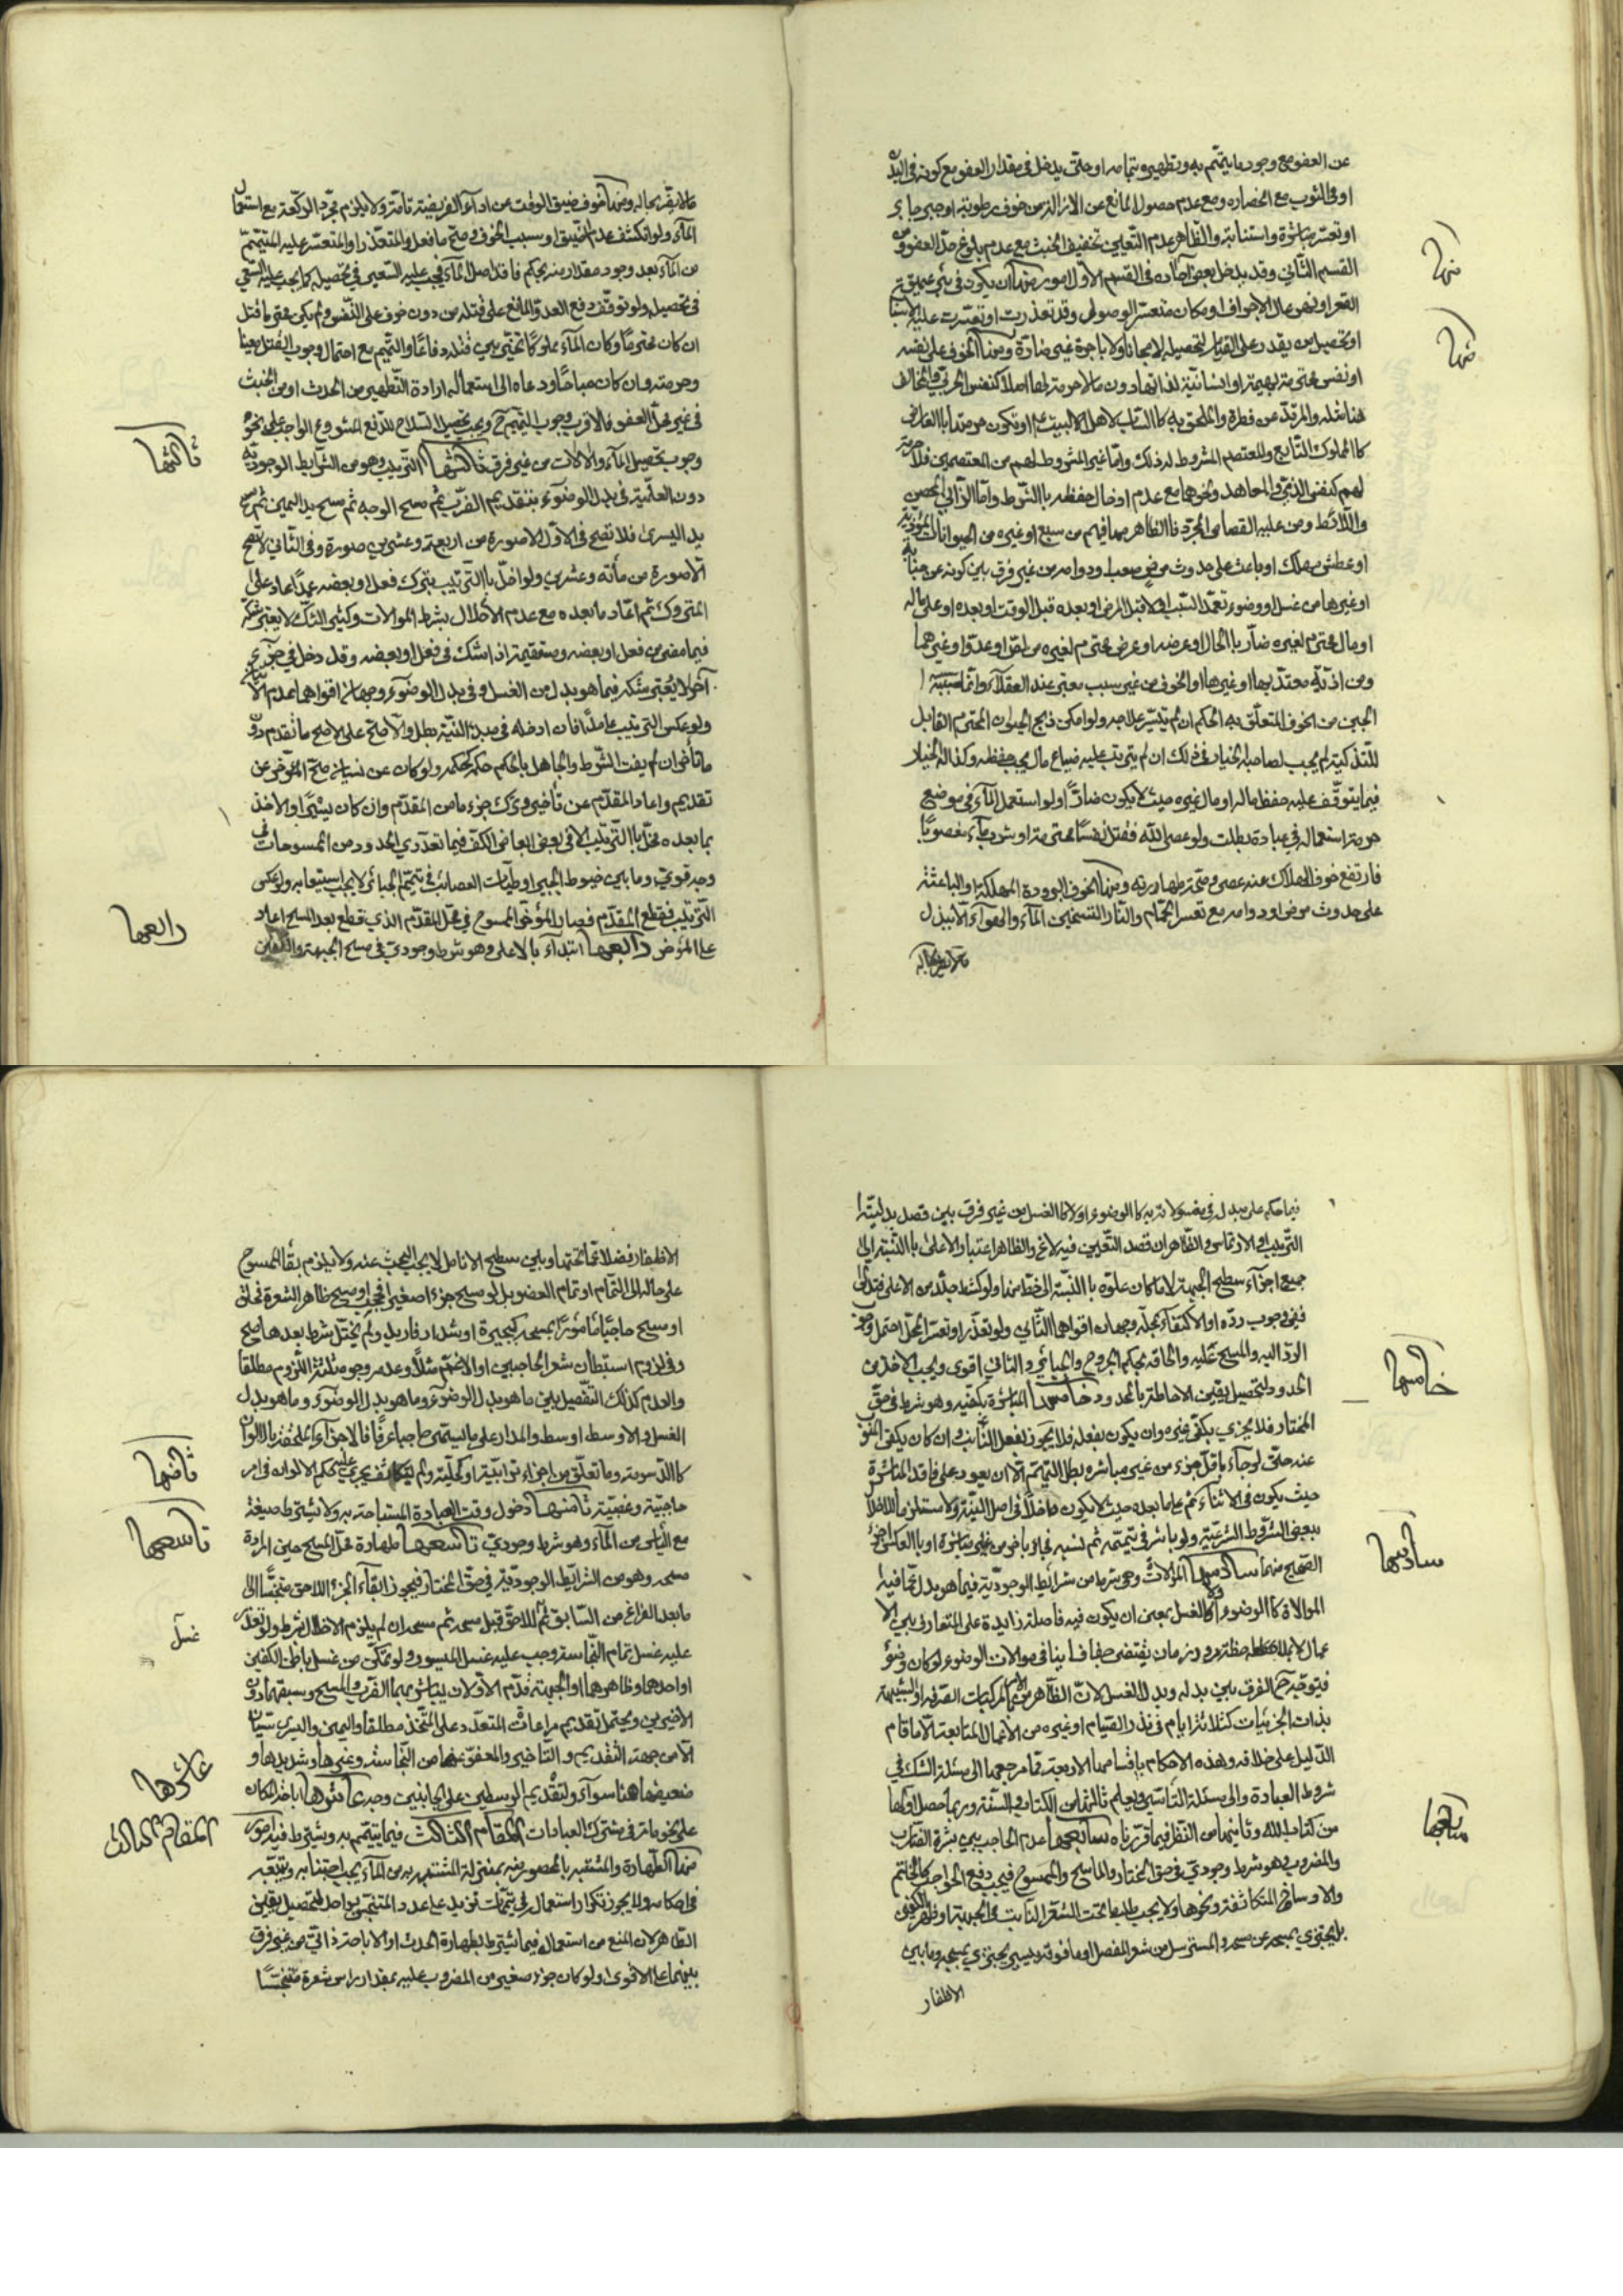 عن العفو مع وجود ما يتمم به وتطهيره بتمامه او حتى يدخل في مقدار العفو مع كونه في البدن
او في الثوب مع انحصاره ومع عدم حصول المانع عن الازالة من خوف رطوبة او جبر جابر
او تعسر مباشرة واستنابة والظاهر عدم التعيين تخفيف الخبث مع عدم بلوغ حد العفو ومن
القسم الثاني وقد يدخل بعض احاده في القسم الاول امور منها ان يكون في بئر عميقة
القعر او نهر عال الاجراف او مكان متعسر الوصول وقد تعذرت او تعسرت عليه الاسباب
او تحصيل من يقدر على القيام لتحصيله لا مجانا ولا باجرة غير ضارة ومنها الخوف على نفسه
او نفس محترمة بهيمة او انسانية لذاتها دون ما لا حرمة لها اصلا كنفس الحربي والمخالف
هنا مثله والمرتد عن فطرة والملحق به كالساب لاهل البيت او تكون حرمتها بالعارض
كالمملوك التابع والمعتصم المشروط له ذلك واما غير المشروط لهم من المعتصمين فلا حرمة
لهم كنفس الذمي والمعاهد ونحوهما مع عدم ادخال حفظه بالشرط واما الزاني المحصن
واللائط ومن عليه القصاص المجرد فالظاهر مساواتهم من سبع او غيره من الحيوانات المؤذية
او عطش مهلك او باعث على حدوث مرض صعب او دوامه من غير فرق بين كونه عن جنابة
او غيرها من غسل او وضوء تعمد السبب او لا قبل المرض او بعده قبل الوقت او بعده او على ماله
او مال محترم لغيره ضار بالحال او عرضه او عرض محترم لغيره من لص او عدو او غيرهما
ومن اذية معتد بها او غيرها او الخوف من غير سبب معتبر عند العقلاء وانما سببه
الجبن من الخوف المتعلق به الحكم ان لم يتيسر علاجه ولو امكن ذبح الحيوان المحترم القابل
للتذكية لم يجب لصاحبه الخيار في ذلك ان لم يترتب عليه ضياع مال يجب حفظه وكذا له الخيار
فيما يتوقف عليه حفظ ماله او مال غيره حيث لا يكون ضارا ولو استعمل الماء في موضع
حرمة استعماله في عبادة بطلت ولو عصى الله فقتل نفسا محترمة او شرب ماء مغصوبا
فارتفع خوف الهلاك عنه عصى وصحت طهارته ومنها الخوف البرودة المهلكة او الباعثة
على حدوث مرض او دوامه مع تعسر الحمام والنار لتسخين الماء والهواء الا ببذل
مالا يضر بحاله
منها
منها
مالا يضر بحاله ومنها خوف ضيق الوقت عن اداء الفريضة تامة ولا يلزم مجرد الركعة مع استعمال
الماء ولو انكشف عدم الضيق او سبب الخوف صح ما فعل والمتعذر او المتعسر عليه المتيمم
من الماء بعد وجود مقدار منه بحكم فاقد اصل الماء فيجب عليه السعي في تحصيله كما يجب عليه السعي
في تحصيله ولو توقف دفع العدو المانع على قتله من دون خوف على النفس ولم يكن محترما قتل
ان كان محترما وكان الماء مملوكا تخير بين قتله دفاعا والتيمم مع احتمال وجوب القتل
وحرمته وان كان مباحا ودعاه الى استعماله ارادة التطهير من الحدث او من الخبث
في غير محل العفو فالاقرب وجوب التيمم ح ويجب تحصيل السلاح للدفع المشروع الواجب على نحو
وجوب تحصيل الماء والآلات من غير فرق ثالثها الترتيب وهو من الشرايط الوجودية
دون العلمية في بدل الوضوء بتقديم الضرب ثم مسح الوجه ثم مسح يد اليمين ثم مسح
يد اليسرى فلا تصح في الاول الا صورة من اربعة وعشرين صورة وفي الثاني لا تصح
الا صورة من مائة وعشرين ولو اخل بالترتيب بترك فعل او بعضه عمدا اعاد على
المتروك ثم اعاد ما بعده مع عدم الاخلال بشرط الموالات وكثير الشك لا يعتبر شكه
فيما مضى من فعل او بعضه ومستقيمه اذا شك في فعل او بعضه وقد دخل في جزء
آخر لا يعتبر شكه فيما هو بدل من الغسل وفي بدل الوضوء وجهان اقواهما عدم الاعتبار
ولو عكس الترتيب عامدا فان ادخله في مبدء النية بطل والا صح على الاصح ما تقدم دون
ما تأخر ان لم يفت الشرط والجاهل بالحكم حكمه كحكمه ولو كان عن نسيان صح المؤخر عن
تقديم واعاد المقدم عن تأخير وترك جزء ما من المقدم وان كان يسيرا والاخذ
بما بعده مخل بالترتيب الا في بعض ابعاض الكف فيما تعذر في الحدود من الممسوحات في
وجه قوي وما بين خيوط الجبيرة وطيات العصائب في تيمم الجبائر لا يجب استيعابه ولو عكس
الترتيب فقطع المقدم فصار المؤخر الممسوح في محل المقدم الذي قطع بعد المسح اعاد
على المؤخر رابعها ابتداء بالاعلى وهو شرط وجودي في مسح الجبهة والكفين
ثالثها
رابعها
فيما حكم على مبدله في مغسولاته به كالوضوء او لا كالغسل من غير فرق بين قصد بدلية
الترتيب او الارتماسي والظاهر ان قصد التعيين فيه لاغ والظاهر اعتبار الاعلى بالنسبة الى
جميع اجزاء سطح الجبهة لا ما كان علوه بالنسبة الى خط منها ولو كشط جلد من الاعلى فتدلى
ففي وجوب رده او الاكتفاء بمحله وجهان اقواهما الثاني ولو تعذر او تعسر المحل احتمل وجوب
الرد اليه والمسح عليه والحاقه بحكم الجروح والجبائر والثاني اقوى ويجب الاخذ من
الحدود لتحصيل يقين الاحاطة بالمحدود خامسها المباشرة بكفيه وهو شرط في حق
المختار فلا يجزي بكفي غيره وان يكون بفعله فلا يجوز بفعل النائب وان كان بكفي المنوب
عنه حتى لو جاء باقل جزء من غير مباشرة بطل التيمم الا ان يعود على فاقد المباشرة
حيث يكون في الاثناء ثم على ما بعده حيث لا يكون داخلا في اصل النية ولا مستلزما للاخلال
ببعض الشروط الشرعية ولو باشر في تيممه ثم نسيه فجاء باخر من غير مباشرة او بالعكس اجزء
الصحيح منهما سادسها الموالات وهي شرط من شرائط الوجودية فيما هو بدل عما فيه
الموالاة كالوضوء او لا كالغسل بمعنى ان يكون فيه فاصلة زايدة على المتعارف بين الا
عمال لا بملاحظة مرور زمان يقتضي جفافا ينافي موالات الوضوء لو كان وضوء
فيتوقح ح الفرق بين بدله وبدل الغسل لان الظاهر من الامر بالمركبات الصرفة او الشبيهة
بذات الجزئيات كثلاثة ايام في نذر الصيام او غيره من الاعمال المتابعة الا ما قام
الدليل على خلافه وهذه الاحكام باقسامها الاربعة مما مرجعها الى مسئلة الشك في
شروط العبادة والى مسئلة التأسي ويعلم ثالثها من الكتاب والسنة وربما حصل اولها
من كتاب الله وثانيها من النظر فيما قررناه سابعها عدم الحاجب بين بشرة الضارب
والمضروب وهو شرط وجودي في حق المختار والماسح والممسوح فيجب دفع الحواجب كالخاتم
والاوساخ المتكاثفة ونحوها ولا يجب طلب ما تحت الشعر النابت على الجبهة او ظهر الكفين
بل يجتزي بمسحه عن مسحه والمسترسل من شعر المفصل او ما فوقه بيسير يجتزي بمسحه وما بين
الاظفار
خامسها
سادسها
سابعها
الاظفار فضلا عما تحتها وبين سطح الانامل لا يجب البحث عنه ولا يلزم بقاء الممسوح
على حاله الى التمام او تمام العضو بل لو مسح جزء اصغير فحجب او مسح ظاهر الشعر فحلق
او مسح حاجبا مأمورا بمسحه كجبيرة او شداد فازيل ولم يختل شرط بعدها صح
وفي لزوم استبطان شعر الحاجبين او الاغم مثلا وعدمه وجوه ثلثة اللزوم مطلقا
والعدم كذلك التفصيل بين ما هو بدل الوضوء وما هو بدل الوضوء وما هو بدل
الغسل والاوسط اوسط والمدار على ما يسمى حاجبا عرفا فالاجزاء الملحقة بالالوان
كالدسومة وما تعلق من اجزاء ترابية او كحلية ولم يتكاثف يجري عليه حكم الالوان في امر
حاجبية وغصبية ثامنها دخول وقت العبادة المستباحة به ولا يشترط ضيقه
مع اليأس من الماء وهو شرط وجودي تاسعها طهارة محل المسح حين ارادة
مسحه وهو من الشرائط الوجودية في حق المختار فيجوز ابقاء الجزء اللاحق متنجسا الى
ما بعد الفراغ من السابق ثم اللاحق قبل مسحه ثم مسحه ان لم يلزم الاخلال بشرط ولو تعذر
عليه غسل تمام النجاسة وجب عليه غسل الميسور ولو تمكن من غسل باطن الكفين
او احدهما وظاهرهما او الجبهة قدم الاولان ليباشر بهما الضرب والمسح وسبقهما دون
الاخيرين ويحتمل تقديم مراعاة المتعدد على المتخذ مطلقا واليمين واليسرى سيان
الا من جهة التقديم والتاخير والمعفو عنها من النجاسة وغيرها وشديدها و
ضعيفها هنا سواء ولتقديم الوسطين على الجانبين وجه عاشرها اباحة المكان
على نحو ما مر في مشترك العبادات المقام الثالث فيما يتيمم به ويشترط فيه امور
منها الطهارة والمشتبه بالمحصور منه بمنزلة المشتبه به من الماء يجب اجتنابه ويتبعه
في احكامه ولا يجوز تكرار استعماله في تيممات تزيد على عدد المتنجس بواحد لتحصيل يقين
الطاهر لان المنع من استعماله فيما يشترط بطهارة الحدث او الاباحة ذاتي من غير فرق
بينهما على الاقوى ولو كان جزء صغير من المضروب عليه بمقدار راس شعرة متنجسا
ثامنها
تاسعها
غسل
عاشرها
المقام الثالث